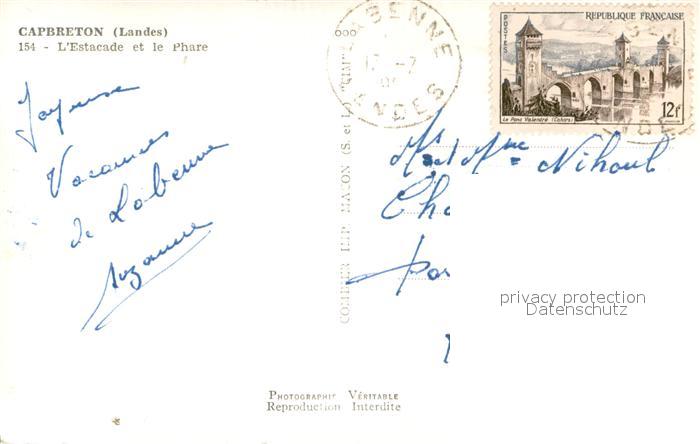 CAPBRETON (Landes)
154 - L'Estacade et le Phare
Joyeuse
Vacances
de Labenne
Suzanne
LABENNE
17 -7
LANDES
REPUBLIQUE FRANÇAISE
POSTES
12f
Le Pont Valentré (Cahors)
Mr et Mme Nihoul
Ch
par
privacy protection
Datenschutz
COMBIER IMP. MACON (S. et L.) "CIM"
PHOTOGRAPHIE VÉRITABLE
Reproduction Interdite